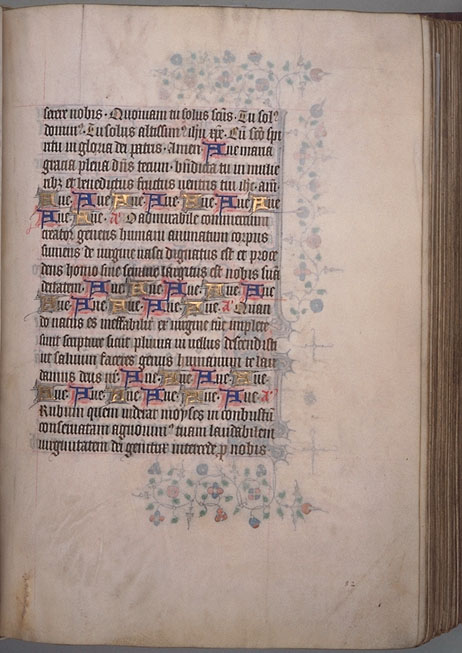 serere nobis. Quoniam tu solus scūs. Tu sol9
domin9. Tu solus altissim9 ihu xp̄e. Cū scō spi
ritu in gloria dei patris. Amen. Aue maria
gracia plena dn̄s tecum. bn̄dicta tu in mulie
ribȝ et benedictus fructus uentris tui ihc. am̄.
Aue. Aue. Aue. Aue. Aue. Aue. Aue
Aue. Aue. a̓ O admirabile commercium
creator generis humani animatum corpus
sumens de uirgine nasci dignatus est et proce
dens homo sine semine largitus est nobis suā
deitatem. Aue. Aue. Aue. Aue. Aue
Aue. Aue. Aue. Aue. Aue. a̓ Quan
do natus es ineffabilit̓ ex uirgine tūc implete
sunt scripture sicut pluuia in uellus descendisti
ut saluum faceres genus humanum te lau
damus deus nr̄. Aue. Aue. Aue. Aue.
Aue. Aue. Aue. Aue. Aue. Aue. a̓
Rubum quem uiderat moyses in conbustū
conseruatam agnouim9 tuam laudabilem
uirginitatem dei genitrix intercede p̱ nobis.